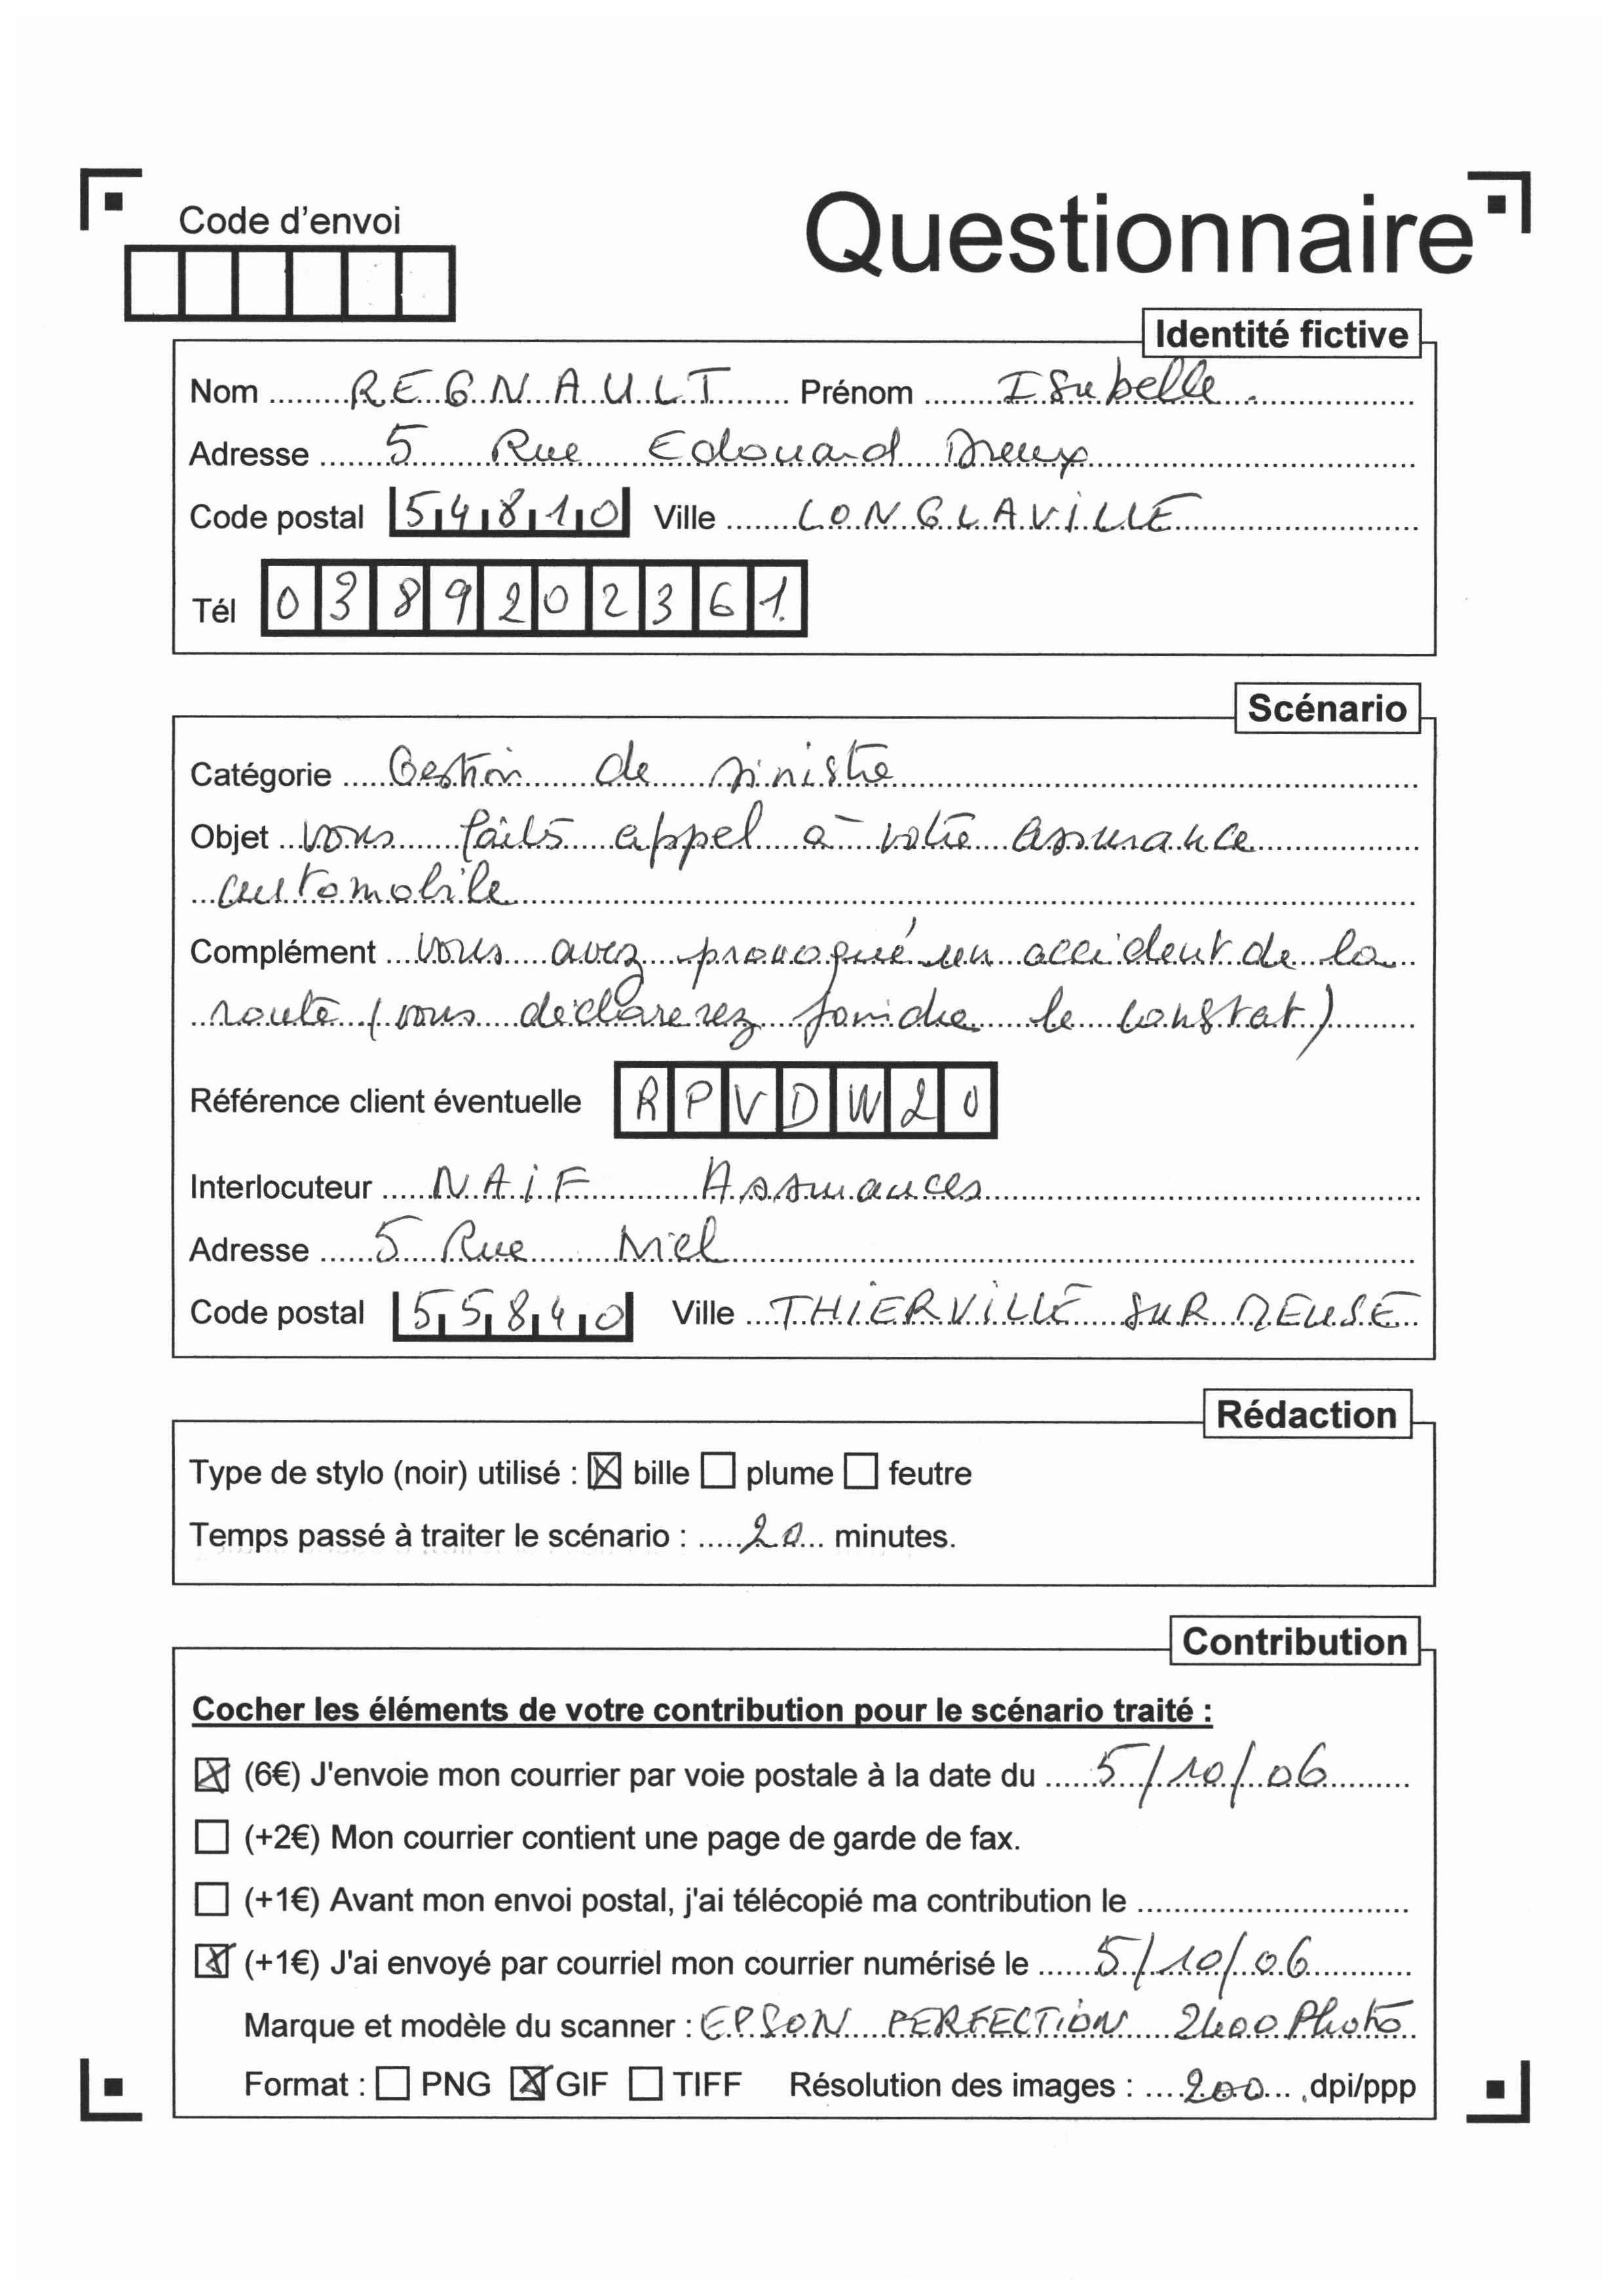 Code d'envoi
Questionnaire
Identité fictive
Nom REGNAULT Prénom Isabelle
Adresse 5 Rue Edouard Dreux
Code postal 54810 Ville LONGLAVILLE
Tél 0389202361
Scénario
Catégorie Gestion de sinistre
Objet Vous faites appel à votre assurance
automobile
Complément Vous avez provoqué un accident de la
route (vous déclarerez joindre le constat)
Référence client éventuelle RPVDW20
Interlocuteur NAIF Assurances
Adresse 5 Rue Niel
Code postal 55840 Ville THIERVILLE SUR MEUSE
Rédaction
Type de stylo (noir) utilisé : ☒ bille ☐ plume ☐ feutre
Temps passé à traiter le scénario : 20 minutes.
Contribution
Cocher les éléments de votre contribution pour le scénario traité :
☒ (6€) J'envoie mon courrier par voie postale à la date du 5/10/06
☐ (+2€) Mon courrier contient une page de garde de fax.
☐ (+1€) Avant mon envoi postal, j'ai télécopié ma contribution le
☒ (+1€) J'ai envoyé par courriel mon courrier numérisé le 5/10/06
Marque et modèle du scanner : EPSON PERFECTION 2400 Photo
Format : ☐ PNG ☒ GIF ☐ TIFF Résolution des images : 200 dpi/ppp